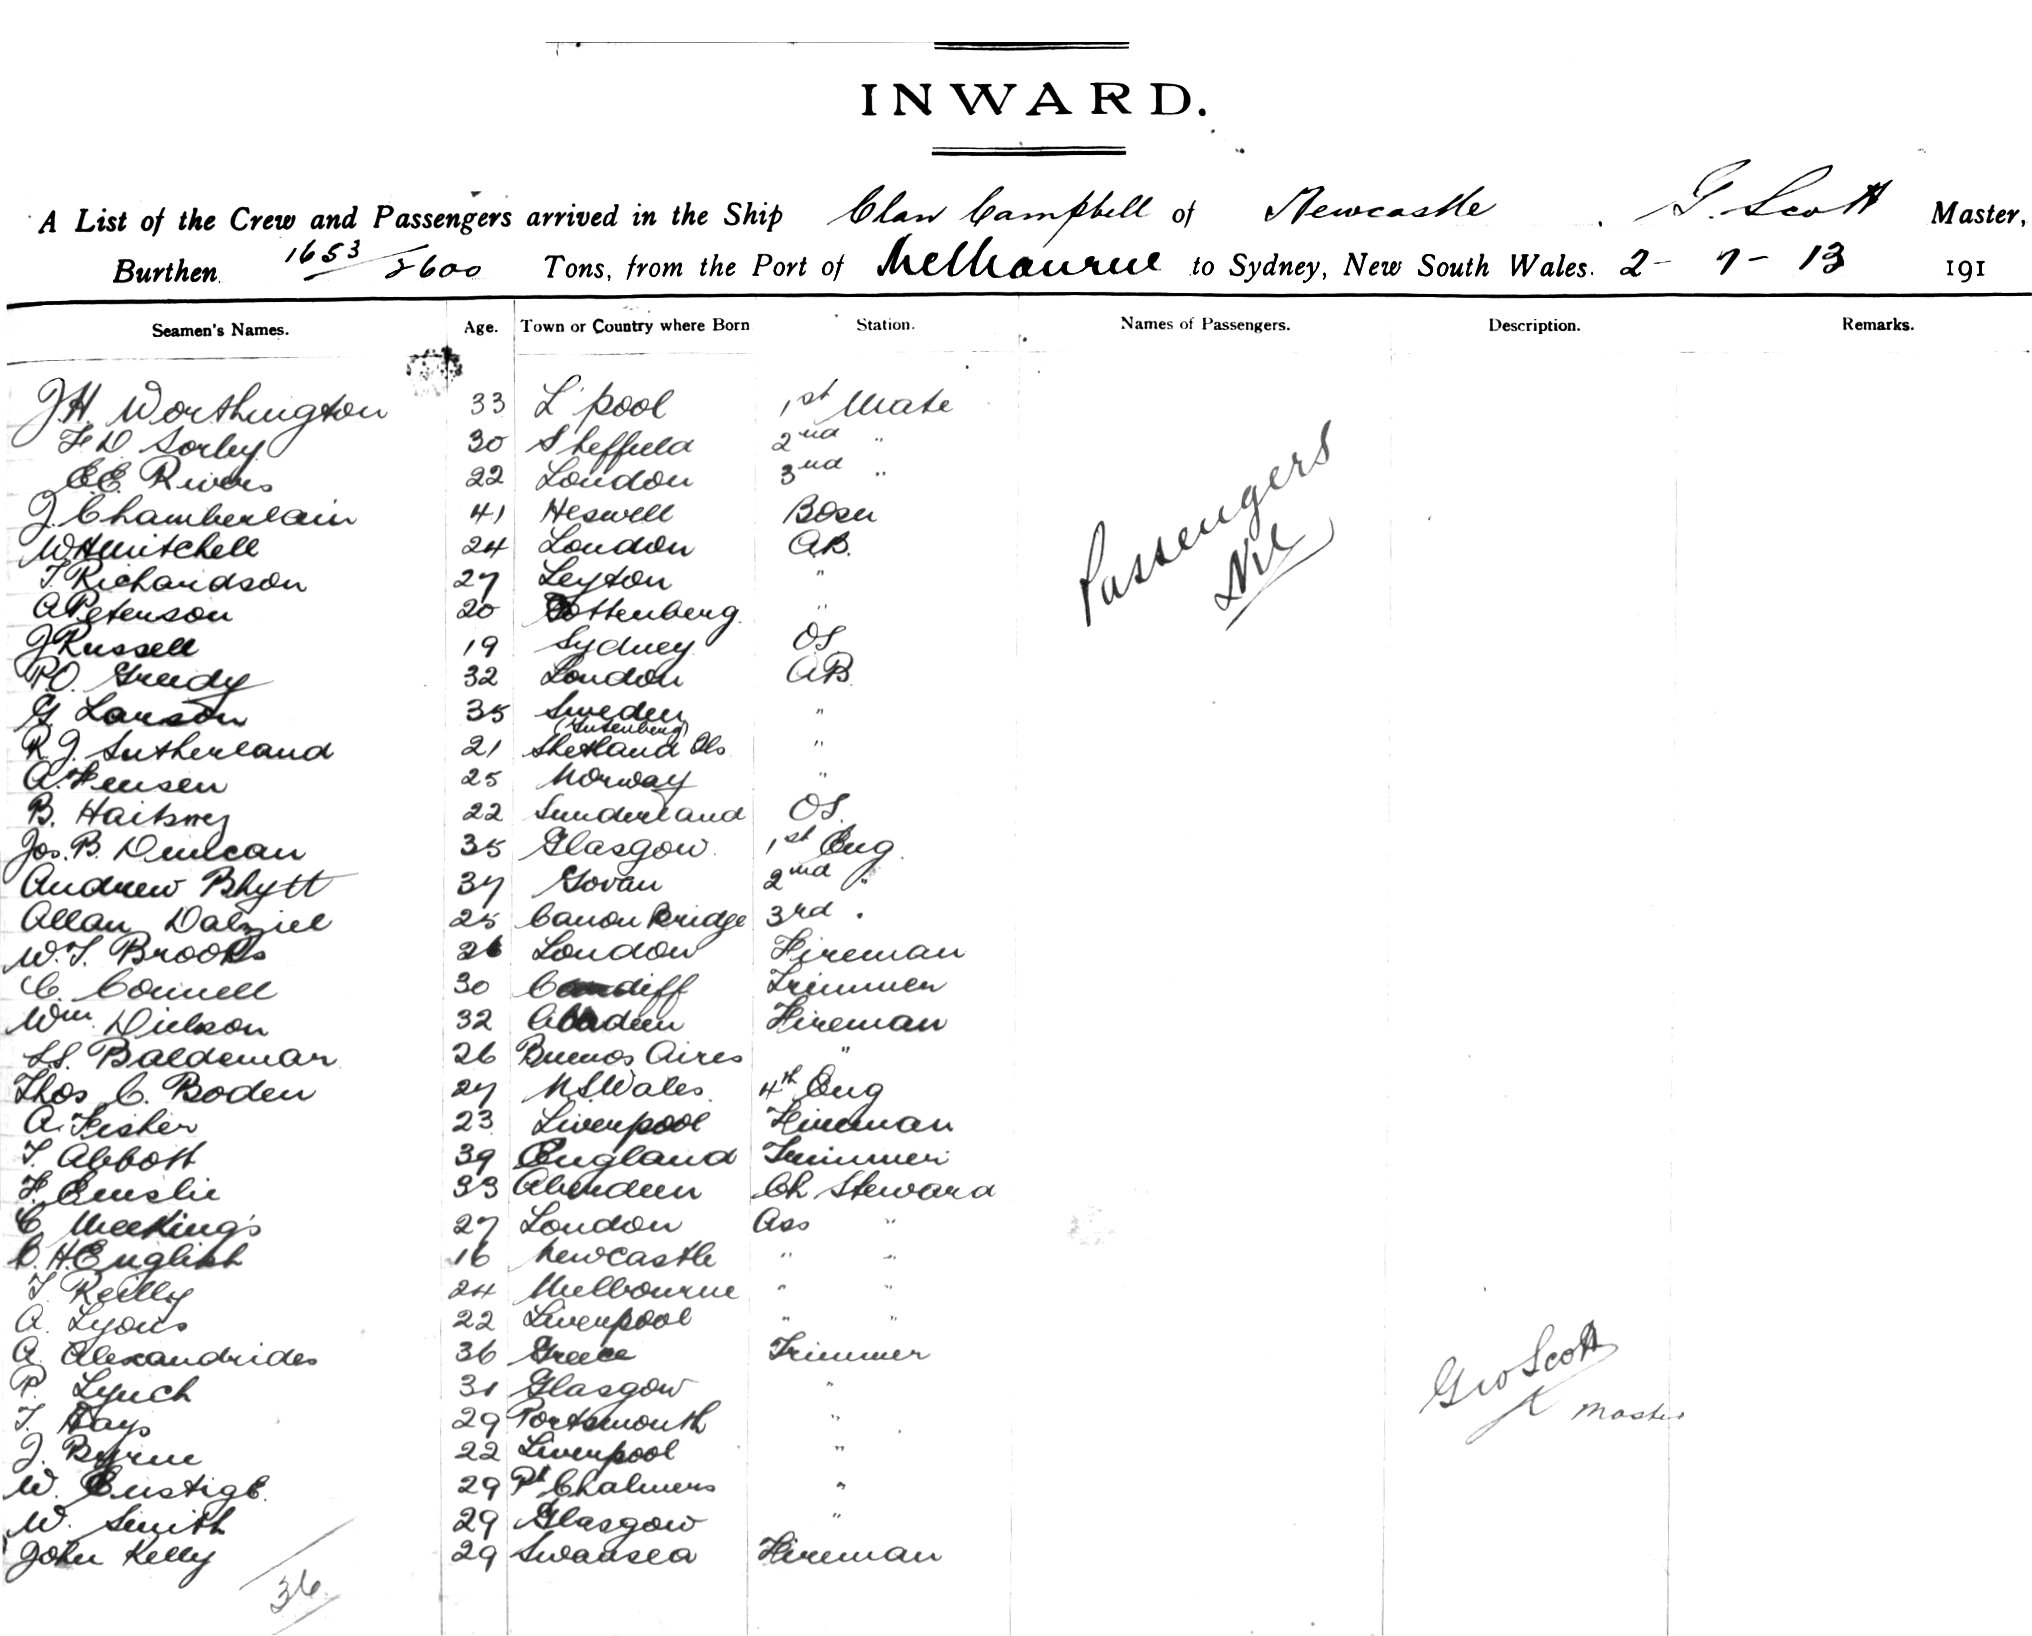 INWARD.
A List of the Crew and Passengers arrived in the Ship Clan Campbell of Newcastle . G. Scott Master,
Burthen 1653/2600 Tons, from the Port of Melbourne to Sydney, New South Wales. 2 - 7 - 13 191
Seamen's Names. Age. Town or Country where Born Station. Names of Passengers. Description. Remarks.
J.H. Worthington 33 L'pool 1st Mate
F D Sorby 30 Sheffield 2nd "
E.E. Rivers 22 London 3rd "
J. Chamberlain 41 Heswell Bosn
W H Mitchell 24 London A.B.
T. Richardson 27 Leyton "
A Peterson 20 Gottenberg "
J Russell 19 Sydney OS
P.O. Greedy 32 London AB
G Larson 35 Sweden "
(Gutenberg)
R. J. Sutherland 21 Shetland Ils "
A. Jensen 25 Norway "
B. 22 Sunderland OS.
Jos. B. Duncan 35 Glasgow 1st Eng.
Andrew Blytt 37 Govan 2nd "
Allan Dalziel 25 Conon Bridge 3rd "
W. T. Brooks 26 London Fireman
C. Connell 30 Cardiff Trimmer
Wm. Dickson 32 Aberdeen Fireman
Baldemar 26 Buenos Aires "
Thos C. Boden 27 N.S.Wales. 4th Eng
A. Fisher 23 Liverpool Fireman
T. Abbott 39 England Trimmer
F. Emslie 33 Aberdeen Ch Steward
C Meekings 27 London Ass "
C. H English 16 Newcastle " "
T. Reilly 24 Melbourne " "
A. Lyons 22 Liverpool " "
A. Alexandrides 36 Greece Trimmer
P. Lynch 31 Glasgow "
T. Hays 29 Portsmouth "
J. Byrne 22 Liverpool "
W. 29 Pt Chalmers "
W. Smith 29 Glasgow "
John Kelly 29 Swansea Fireman
36
Passengers
Nil
Geo Scott
Master